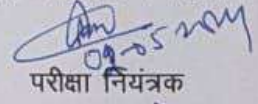 09-05-2014
परीक्षा नियंत्रक